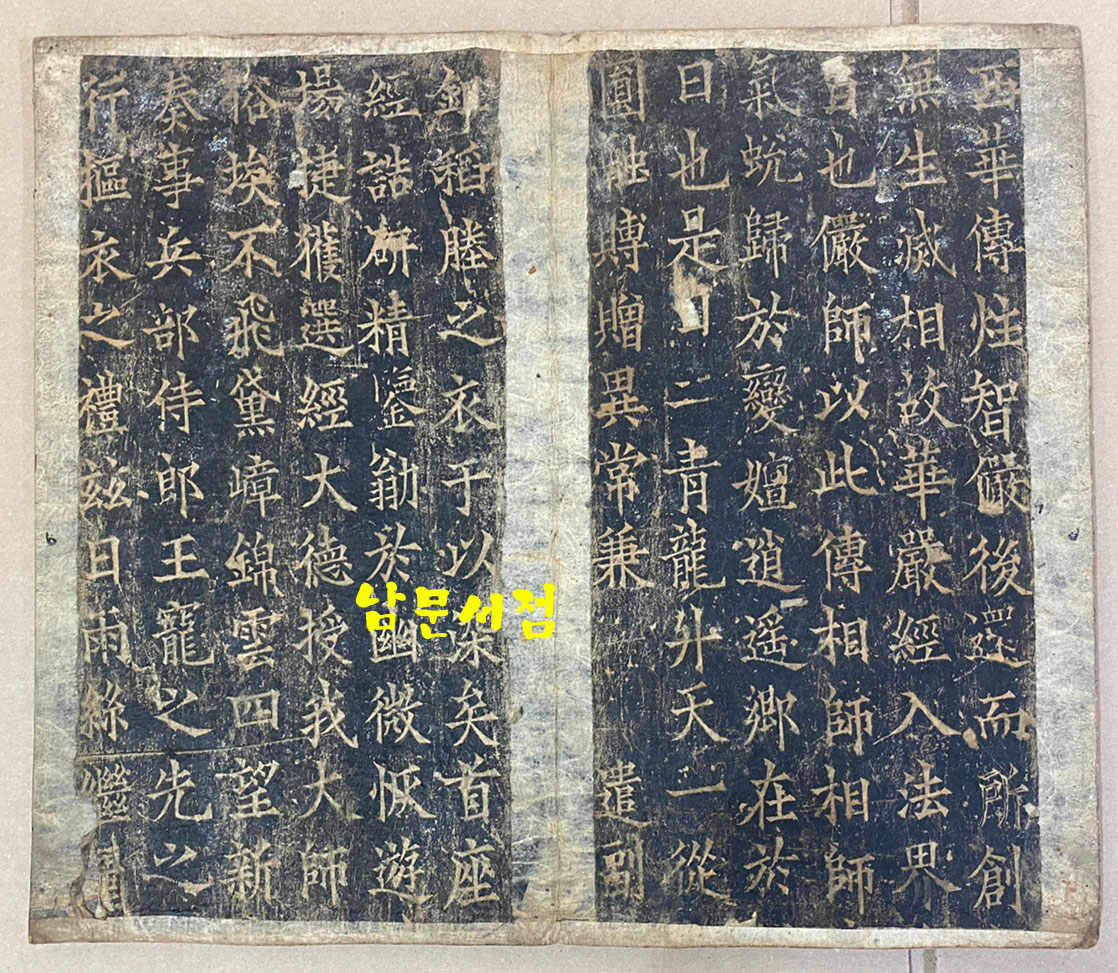 西華傳炷智儼後而所創
無生滅相故華嚴經入法界
也儼師以此傳相師相師
氣蛻歸於變嬗逍遥鄉在於
日也是日二青龍升天一從
圓賻贈異常兼 遣副
稻塍之衣于以矣首座
經誥研精於幽微恢遊
揚捷獲選經大德授我大師
俗埃不飛黛嶂錦雲四望新
奏事兵部侍郎王寵之先之
行摳衣之禮茲日雨絲繼
남문서점